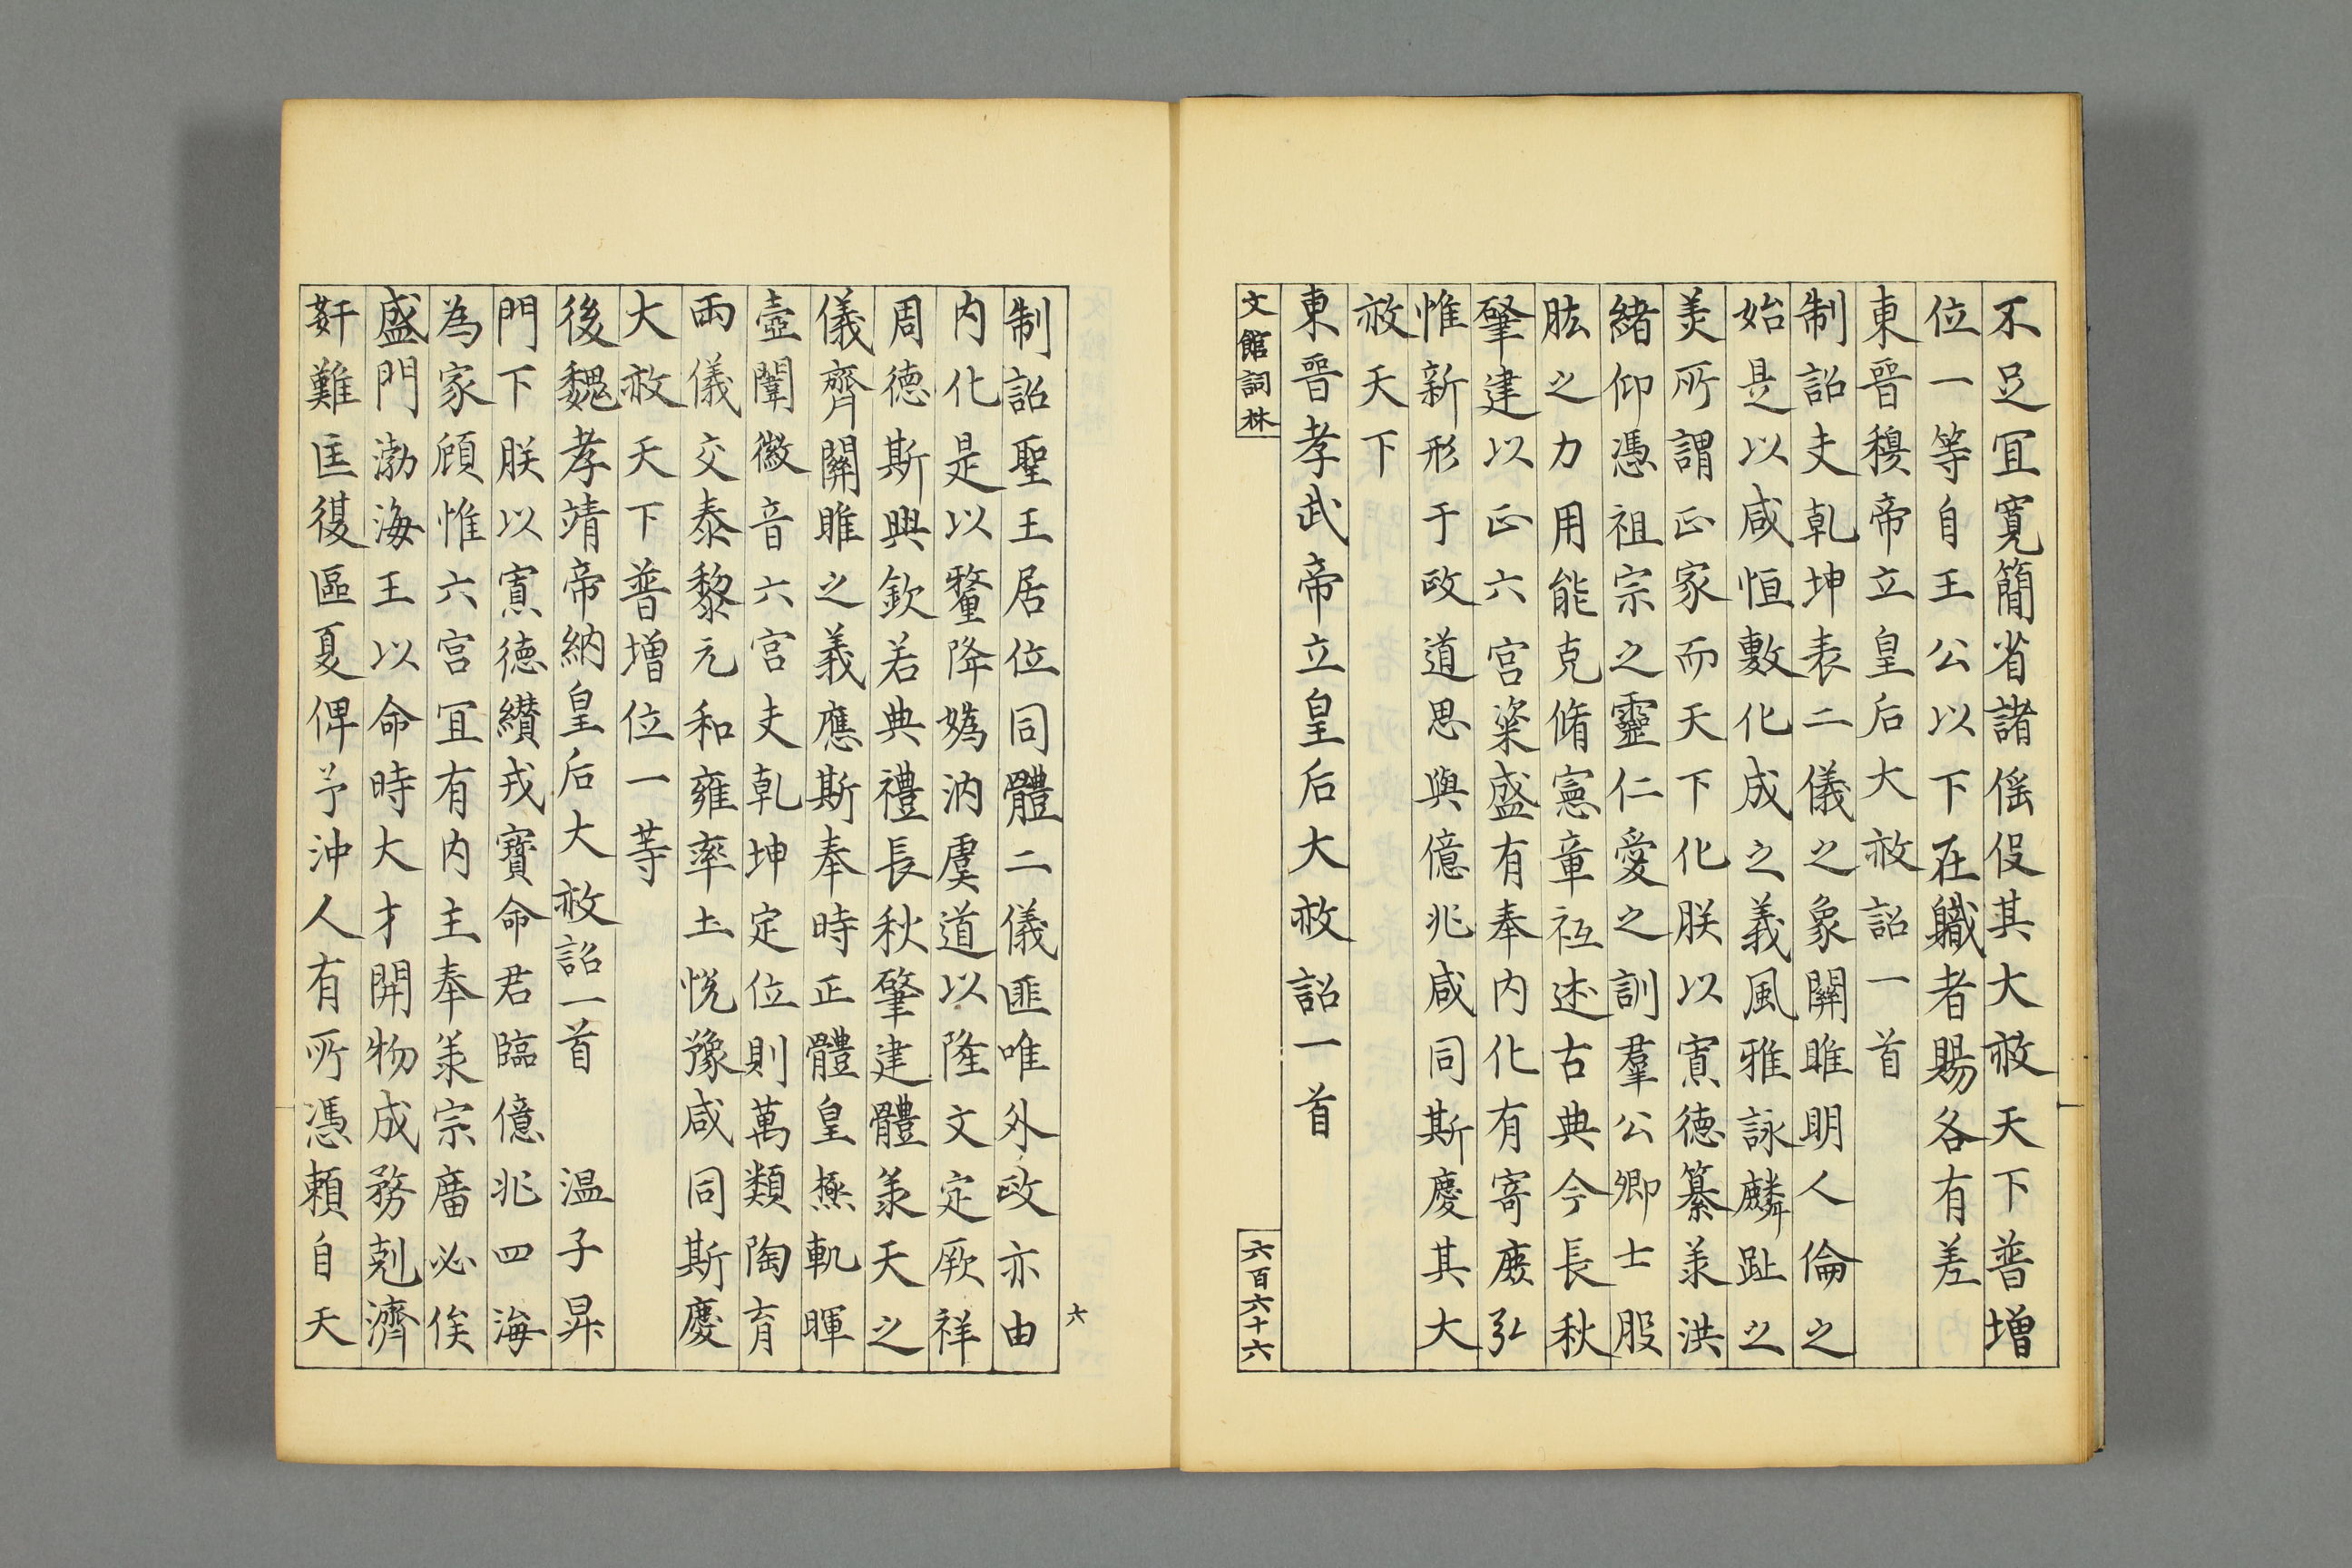 不足宜寬簡省諸傜役其大赦天下普增
位一等自王公以下在職者賜各有差
東晉穆帝立皇后大赦詔一首
制詔夫乾坤表二儀之象關雎明人倫之
始是以咸恒敷化成之義風雅詠麟趾之
美所謂正家而天下化朕以寡德纂承洪
緒仰憑祖宗之靈仁愛之訓羣公卿士股
肱之力用能克脩憲章祗述古典今長秋
肇建以正六宮粢盛有奉內化有寄庶弘
惟新形于政道思與億兆咸同斯慶其大
赦天下
東晉孝武帝立皇后大赦詔一首
文館詞林
六百六十六
制詔聖王居位同體二儀匪唯外政亦由
內化是以釐降媯汭虞道以隆文定厥祥
周德斯興欽若典禮長秋肇建體承天之
儀齊關雎之義應斯奉時正體皇極軌暉
壼闈徽音六宮夫乾坤定位則萬類陶育
兩儀交泰黎元和雍率土悅豫咸同斯慶
大赦天下普增位一等
後魏孝靖帝納皇后大赦詔一首 温子昇
門下朕以寡德纘戎寶命君臨億兆四海
為家顧惟六宮宜有內主奉承宗廟必俟
盛門渤海王以命時大才開物成務剋濟
姧難匡復區夏俾予沖人有所憑賴自天
六